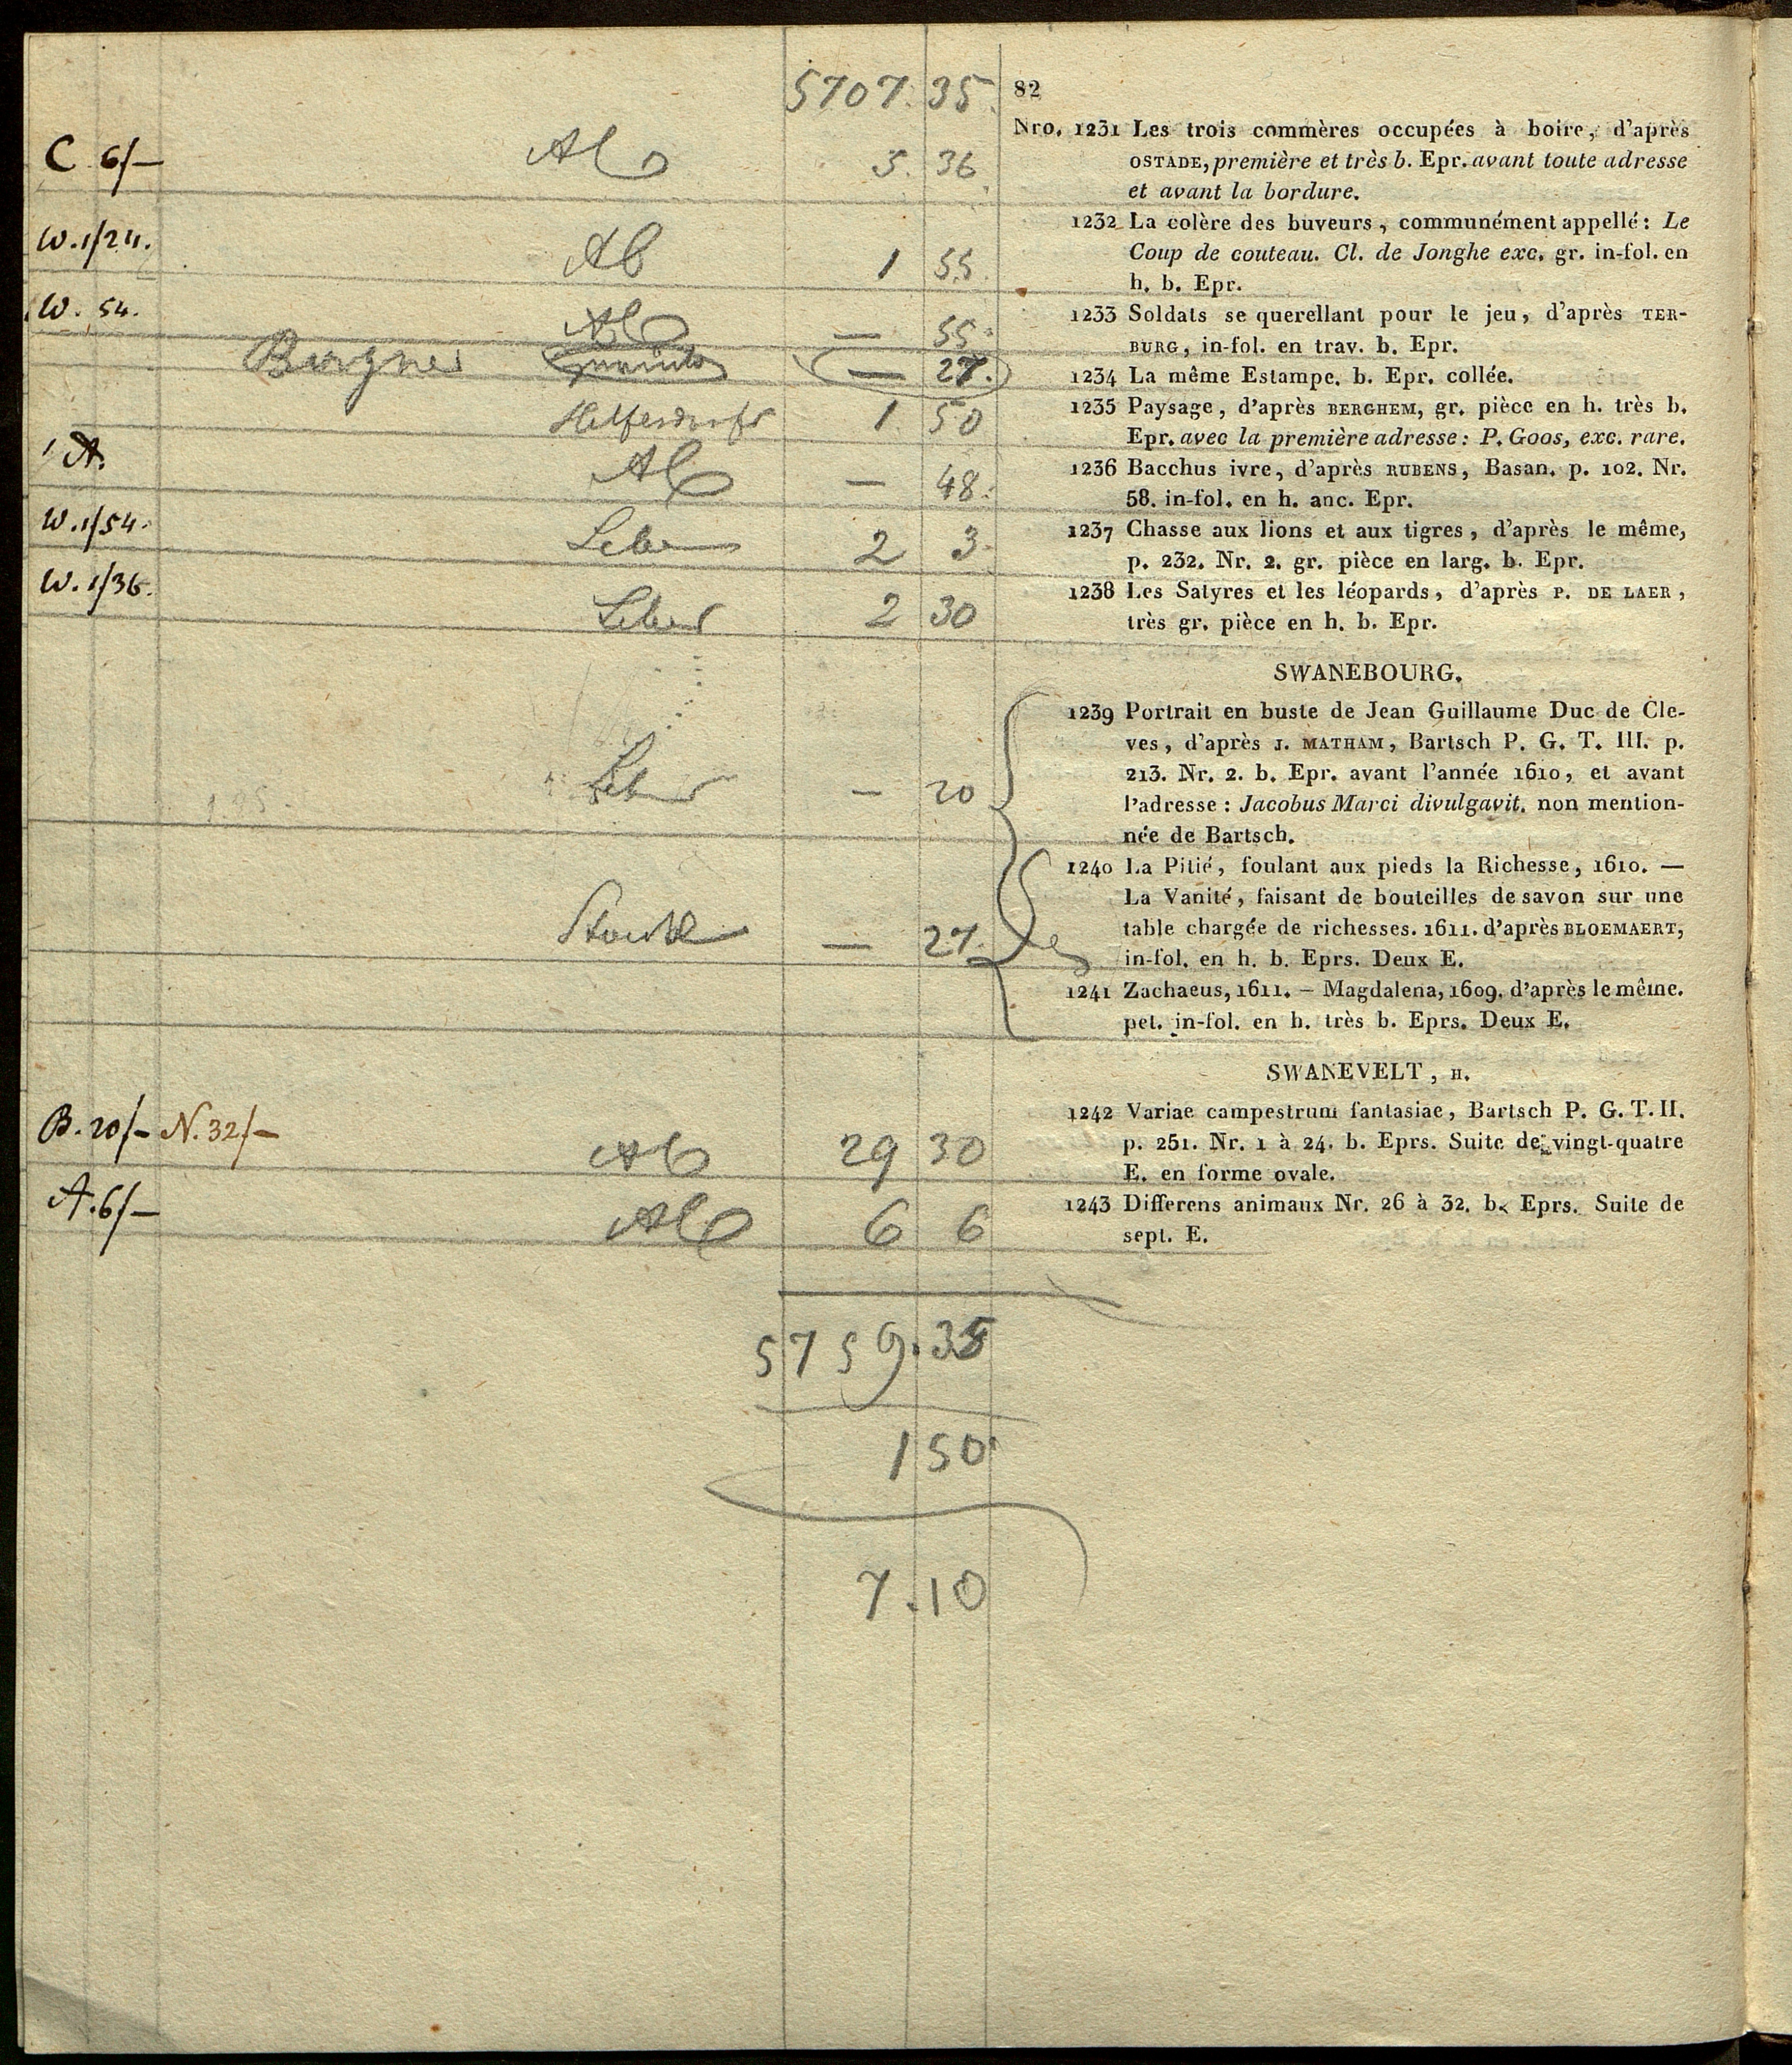 5707. 35. 82
Nro. 1231 Les trois commères occupées à boire, d'après
C 6/— 5. 36 OSTADE, première et très b. Epr. avant toute adresse
et avant la bordure.
W. 1/24. 1 55. 1232 La colère des buveurs, communément appellé: Le
Coup de couteau. Cl. de Jonghe exc. gr. in-fol. en
h. b. Epr.
W. 54. — 55. 1233 Soldats se querellant pour le jeu, d'après TER-
BURG, in-fol. en trav. b. Epr.
— 27. 1234 La même Estampe. b. Epr. collée.
1 50 1235 Paysage, d'après BERGHEM, gr. pièce en h. très b.
Epr. avec la première adresse: P. Goos, exc. rare.
A. — 48. 1236 Bacchus ivre, d'après RUBENS, Basan. p. 102. Nr.
58. in-fol. en h. anc. Epr.
W. 1/54. 2 3. 1237 Chasse aux lions et aux tigres, d'après le même,
p. 232. Nr. 2. gr. pièce en larg. b. Epr.
W. 1/36. 2 30 1238 Les Satyres et les léopards, d'après P. DE LAER,
très gr. pièce en h. b. Epr.
SWANEBOURG.
1239 Portrait en buste de Jean Guillaume Duc de Cle-
ves, d'après J. MATHAM, Bartsch P. G. T. III. p.
213. Nr. 2. b. Epr. avant l'année 1610, et avant
— 20 l'adresse: Jacobus Marci divulgavit. non mention-
née de Bartsch.
1240 La Pitié, foulant aux pieds la Richesse, 1610. —
La Vanité, faisant de bouteilles de savon sur une
— 27. table chargée de richesses. 1611. d'après BLOEMAERT,
in-fol. en h. b. Eprs. Deux E.
1241 Zachaeus, 1611. — Magdalena, 1609. d'après le même.
pet. in-fol. en h. très b. Eprs. Deux E.
SWANEVELT, H.
1242 Variae campestrum fantasiae, Bartsch P. G. T. II.
B. 20/— N. 32/— 29 30 p. 251. Nr. 1 à 24. b. Eprs. Suite de vingt-quatre
E. en forme ovale.
A. 6/— 6 6 1243 Differens animaux Nr. 26 à 32. b. Eprs. Suite de
sept. E.
5759. 35
150
7. 10